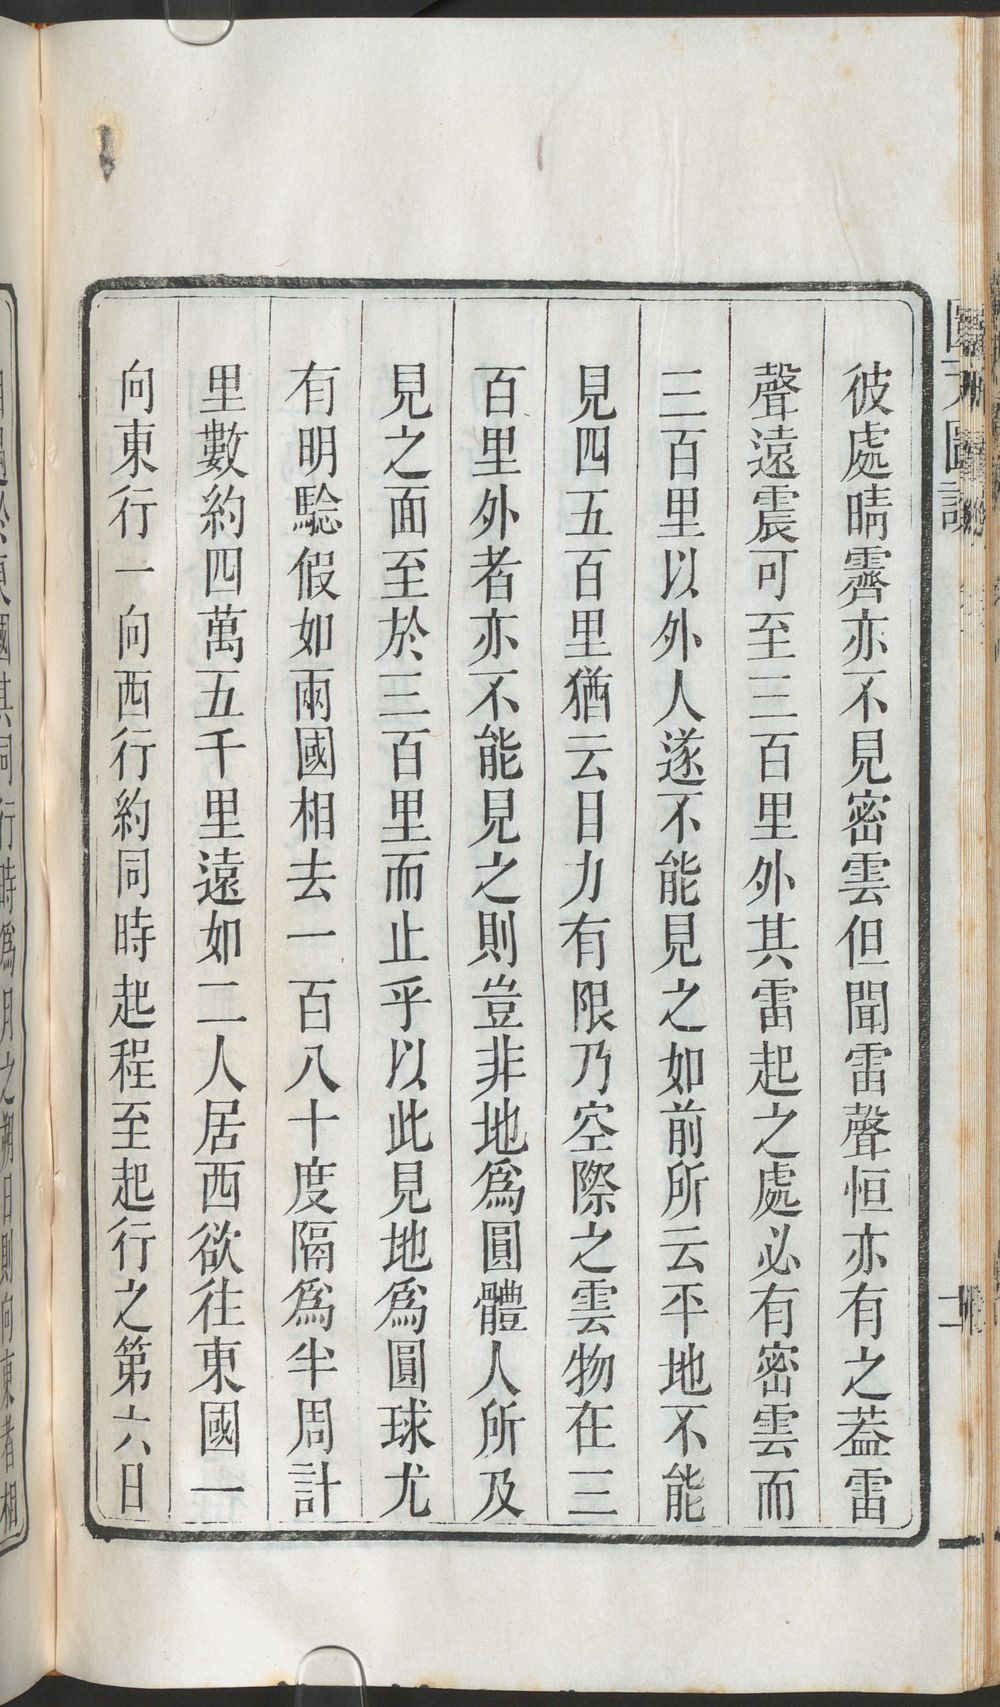 彼處晴霽亦不見密雲但聞雷聲恒亦有之葢雷
聲遠震可至三百里外其雷起之處必有密雲而
三百里以外人遂不能見之如前所云平地不能
見四五百里猶云目力有限乃空際之雲物在三
百里外者亦不能見之則豈非地爲圓體人所及
見之面至於三百里而止乎以此見地爲圓球尤
有明騐假如兩國相去一百八十度隔爲半周計
里數約四萬五千里遠如二人居西欲往東國一
向東行一向西行約同時起程至起行之第六日
國其同行時爲月之朔日則向東者相